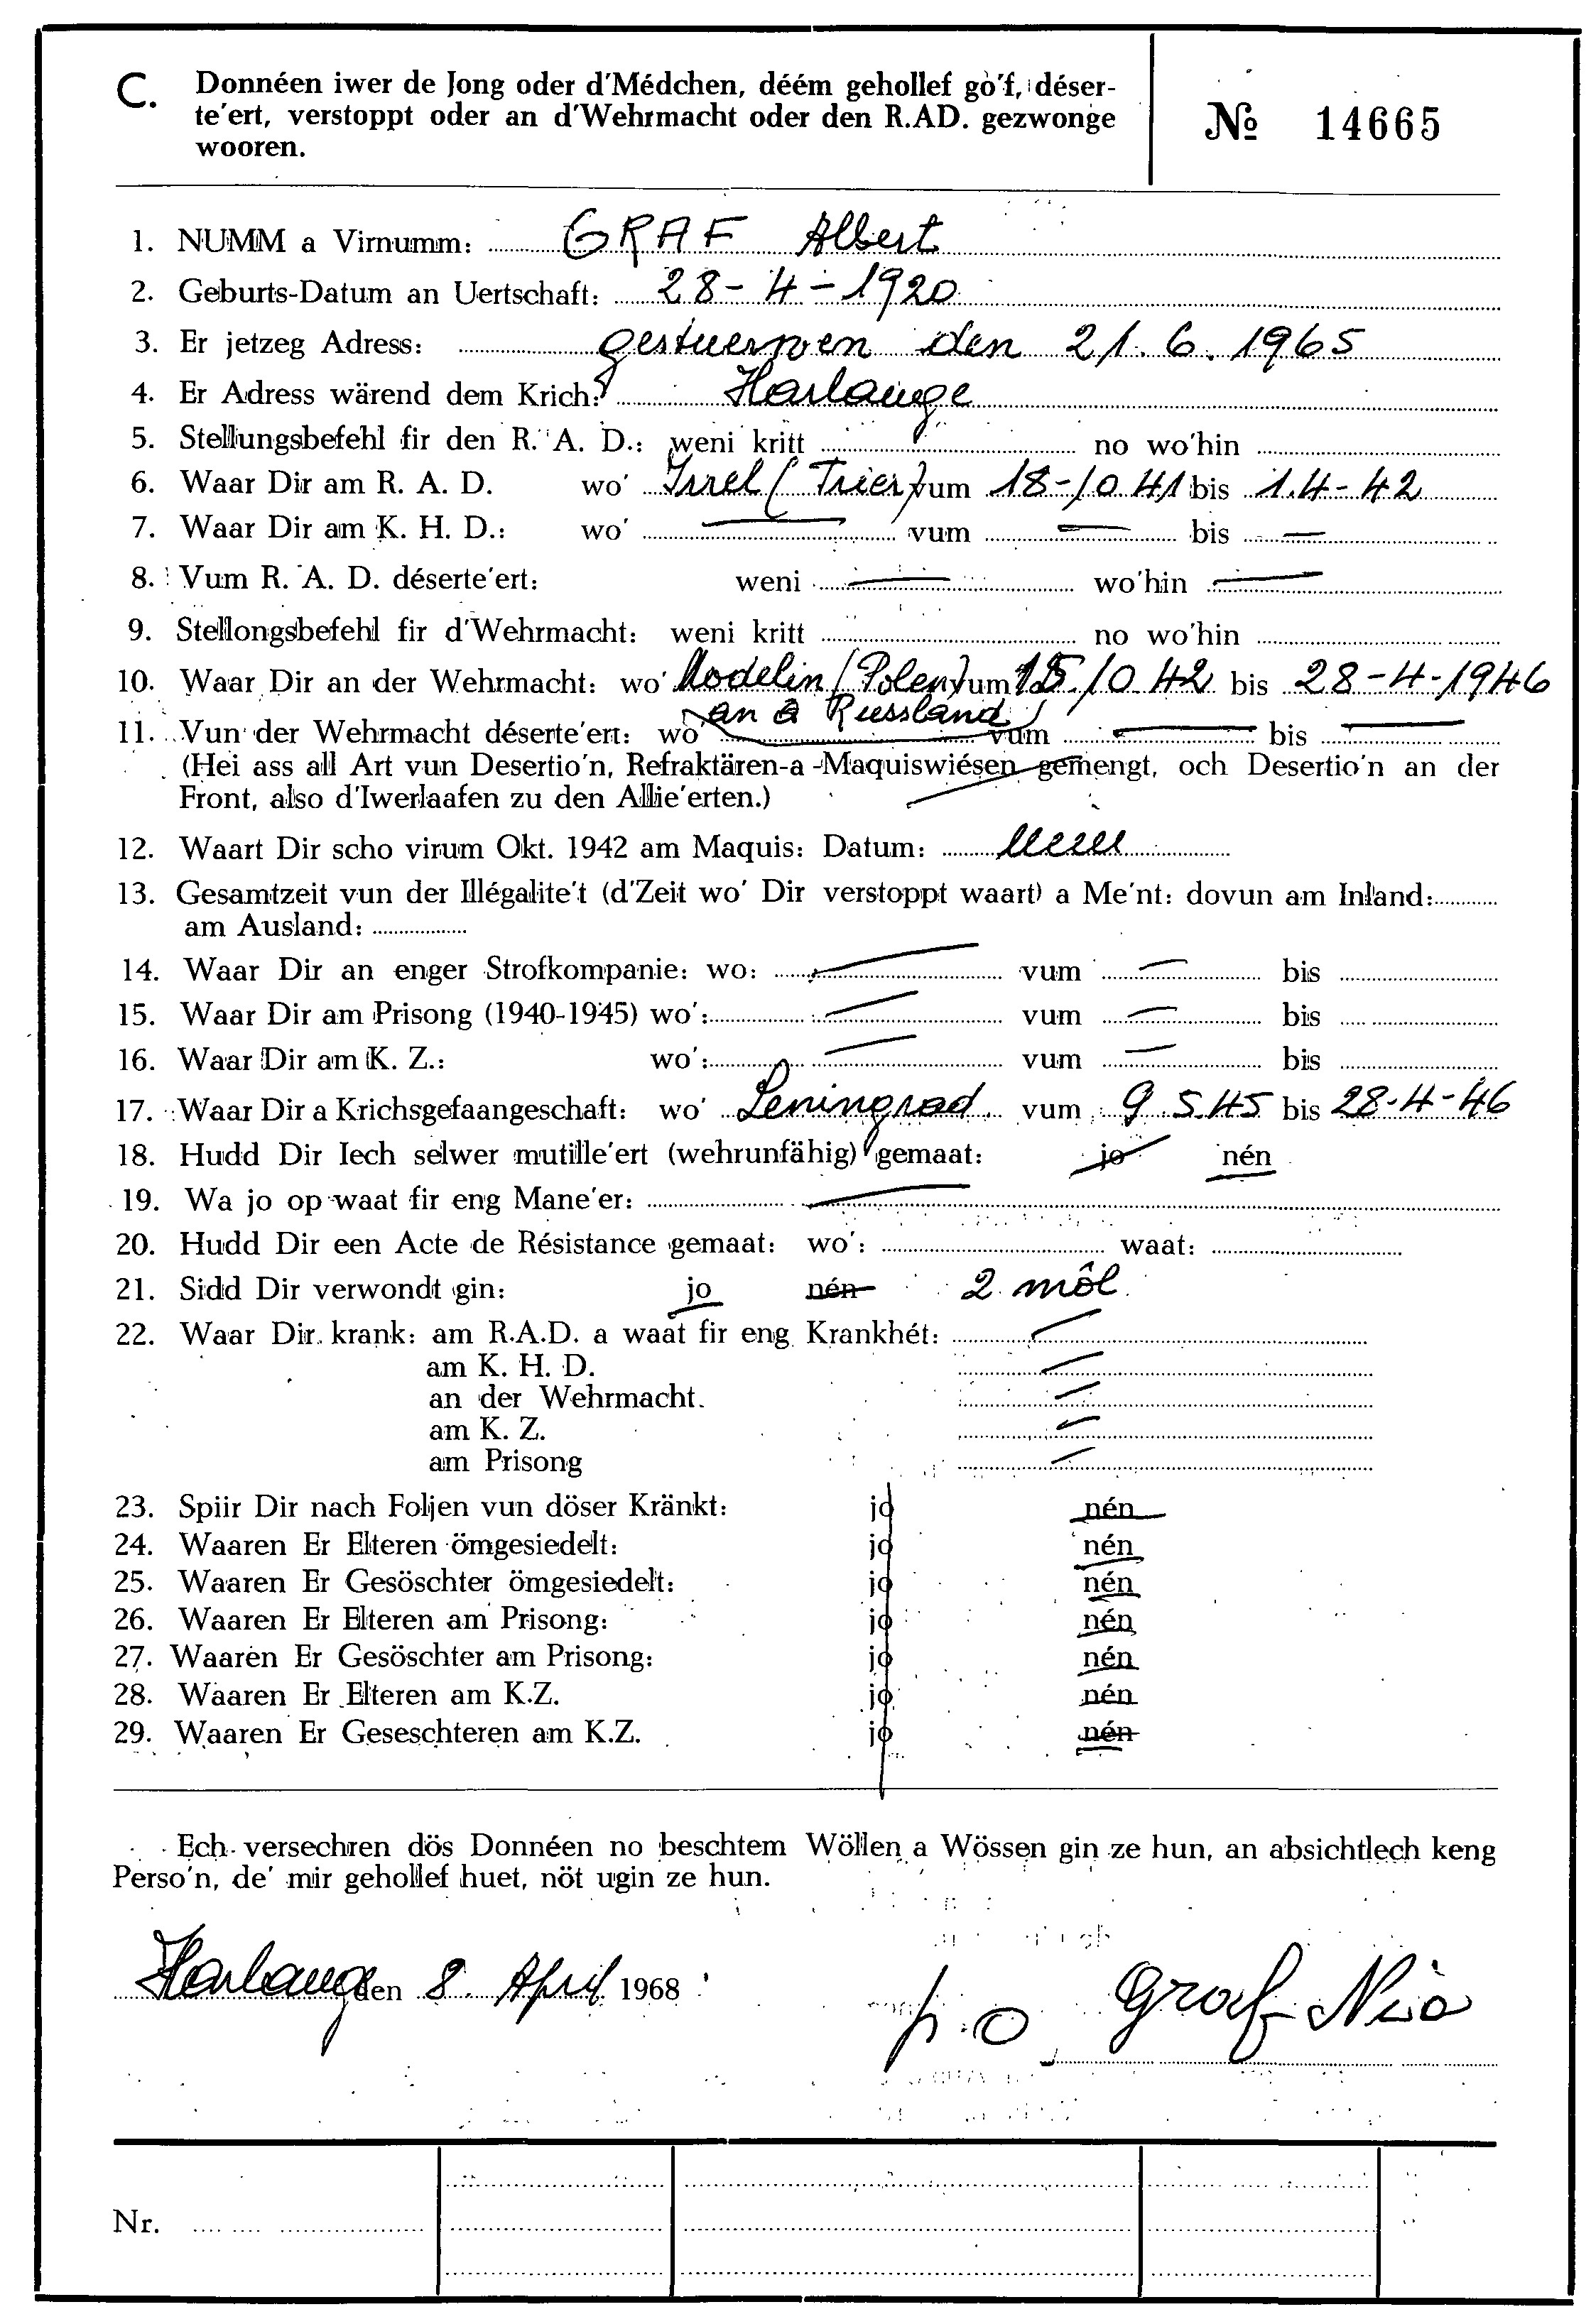 C. Donnéen iwer de Jong oder d'Médchen, déém gehollef gò'f, déser-
te'ert, verstoppt oder an d'Wehrmacht oder den R.AD. gezwonge
wooren.
№ 14665
1. NUMM a Virnumm: GRAF Albert
2. Geburts-Datum an Uertschaft: 28-4-1920
3. Er jetzeg Adress: gestuerwen den 21.6.1965
4. Er Adress wärend dem Krich: Harlange
5. Stellungsbefehl fir den R. A. D.: weni kritt no wo'hin
6. Waar Dir am R. A. D. wo' Irrel (Trier) vum 18-10 41 bis 1.4-42
7. Waar Dir am K. H. D.: wo' — vum — bis —
8. Vum R. A. D. déserte'ert: weni — wo'hin —
9. Stellongsbefehl fir d'Wehrmacht: weni kritt no wo'hin
10. Waar Dir an der Wehrmacht: wo' Modelin (Polen) vum 15.10 42 bis 28-4-1946
an a Russland
11. Vun der Wehrmacht déserte'ert: wo' vum — bis —
(Hei ass all Art vun Desertio'n, Refraktären-a-Maquiswiésen gemengt, och Desertio'n an der
Front, also d'Iwerlaafen zu den Allie'erten.)
12. Waart Dir scho virum Okt. 1942 am Maquis: Datum:
13. Gesamtzeit vun der Illégalite't (d'Zeit wo' Dir verstoppt waart) a Me'nt: dovun am Inland:
am Ausland:
14. Waar Dir an enger Strofkompanie: wo: — vum — bis
15. Waar Dir am Prisong (1940-1945) wo': — vum — bis
16. Waar Dir am K. Z.: wo': — vum — bis
17. Waar Dir a Krichsgefaangeschaft: wo' Leningrad vum 9 5.45 bis 28-4-46
18. Hudd Dir Iech selwer mutille'ert (wehrunfähig) gemaat: jo nén
19. Wa jo op waat fir eng Mane'er: —
20. Hudd Dir een Acte de Résistance gemaat: wo': waat:
21. Sidd Dir verwondt gin: jo nén 2 môl
22. Waar Dir krank: am R.A.D. a waat fir eng Krankhét: —
am K. H. D. —
an der Wehrmacht. —
am K. Z. —
am Prisong —
23. Spiir Dir nach Foljen vun döser Kränkt: jo nén
24. Waaren Er Elteren ömgesiedelt: jo nén
25. Waaren Er Gesöschter ömgesiedelt: jo nén
26. Waaren Er Elteren am Prisong: jo nén
27. Waaren Er Gesöschter am Prisong: jo nén
28. Waaren Er Elteren am K.Z. jo nén
29. Waaren Er Geseschteren am K.Z. jo nén
Ech versechren dös Donnéen no beschtem Wöllen a Wössen gin ze hun, an absichtlech keng
Perso'n, de' mir gehollef huet, nöt ugin ze hun.
Harlange den 8. April 1968
p.o Graf
Nr.